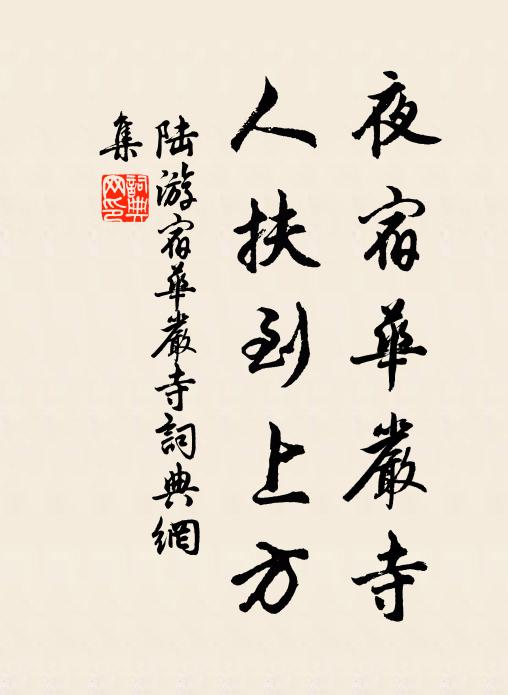 夜宿華嚴寺
人扶到上方
陸游宿華嚴寺詞典網
集
詞典網印